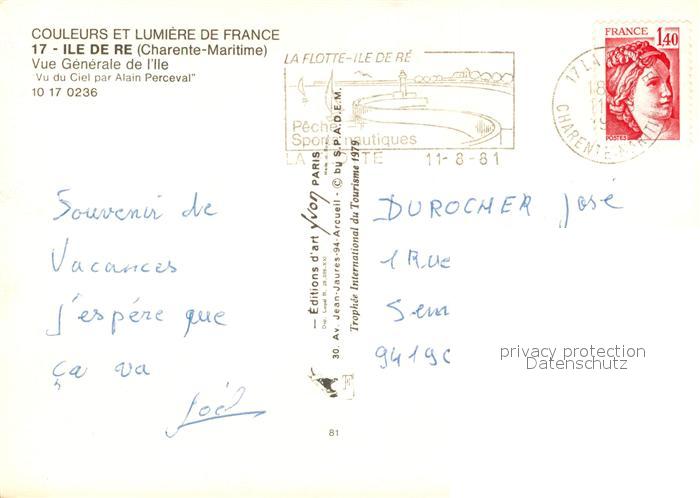 COULEURS ET LUMIÈRE DE FRANCE
17 - ILE DE RE (Charente-Maritime)
Vue Générale de l'Ile
"Vu du Ciel par Alain Perceval"
10 17 0236
LA FLOTTE-ILE DE RÉ
Pêche
Sports nautiques
LA FLOTTE 11-8-81
17 LA
18
11-
19
CHARENTE-MARITIME
FRANCE
1,40
POSTES
Souvenir de
Vacances
J'espère que
ça va
Joël
— Éditions d'art yvon PARIS
Made in
30. Av. Jean-Jaures-94-Arcueil - © by S.P.A.D.E.M.
Trophée International du Tourisme 1979
DUROCHER José
1 Rue
94196
privacy protection
Datenschutz
81